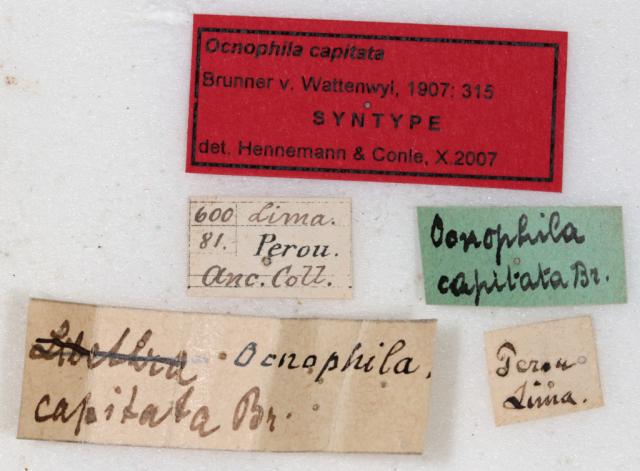 Ocnophila capitata
Brunner v. Wattenwyl, 1907: 315
SYNTYPE
det. Hennemann & Conle, X.2007
600 Lima.
81. Perou.
Anc. Coll.
Ocnophila
capitata Br.
Ocnophila.
capitata Br.
Perou
Lima.